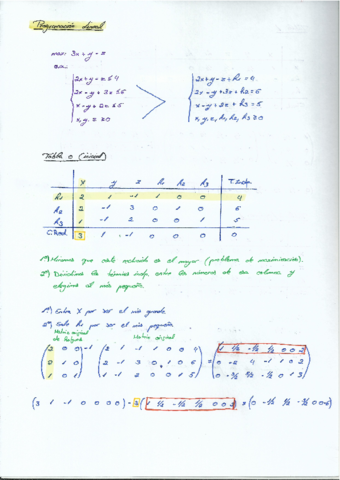 Programación lineal
max: 3x + y - z
s.a.
2x + y - z ≤ 4
2x - y + 3z ≤ 5
x - y + 2z ≤ 5
x, y, z ≥ 0
2x + y - z + h₁ = 4
2x - y + 3z + h₂ = 5
x - y + 2z + h₃ = 5
x, y, z, h₁, h₂, h₃ ≥ 0
Tabla 0 (inicial)
x y z h₁ h₂ h₃ T. Indep
h₁ 2 1 -1 1 0 0 4
h₂ 2 -1 3 0 1 0
h₃ 1 -1 2 0 0 1 5
C. Red. 3 1 -1 0 0 0 0
1º) Miramos que coste reducido es el mayor (problema de maximización).
2º) Dividimos los términos indep. entre los números de esa columna y
elegimos el más pequeño.
1º) Entra X por ser el más grande
2º) Sale h₁ por ser el más pequeño
Matriz original
Matriz original
(2 0 0
2 1 0
1 0 1)⁻¹
(2 1 -1 1 0 0 4
2 -1 3 0 1 0
1 -1 2 0 0 1 5)
= (1 ½ -½ ½ 0 0 2
0 -2 4 -1 1 0
0 -½ 0 1 3)
(3 1 -1 0 0 0 0) - 3 (1 ½ -½ ½ 0 0 2) = (0 -½ ½